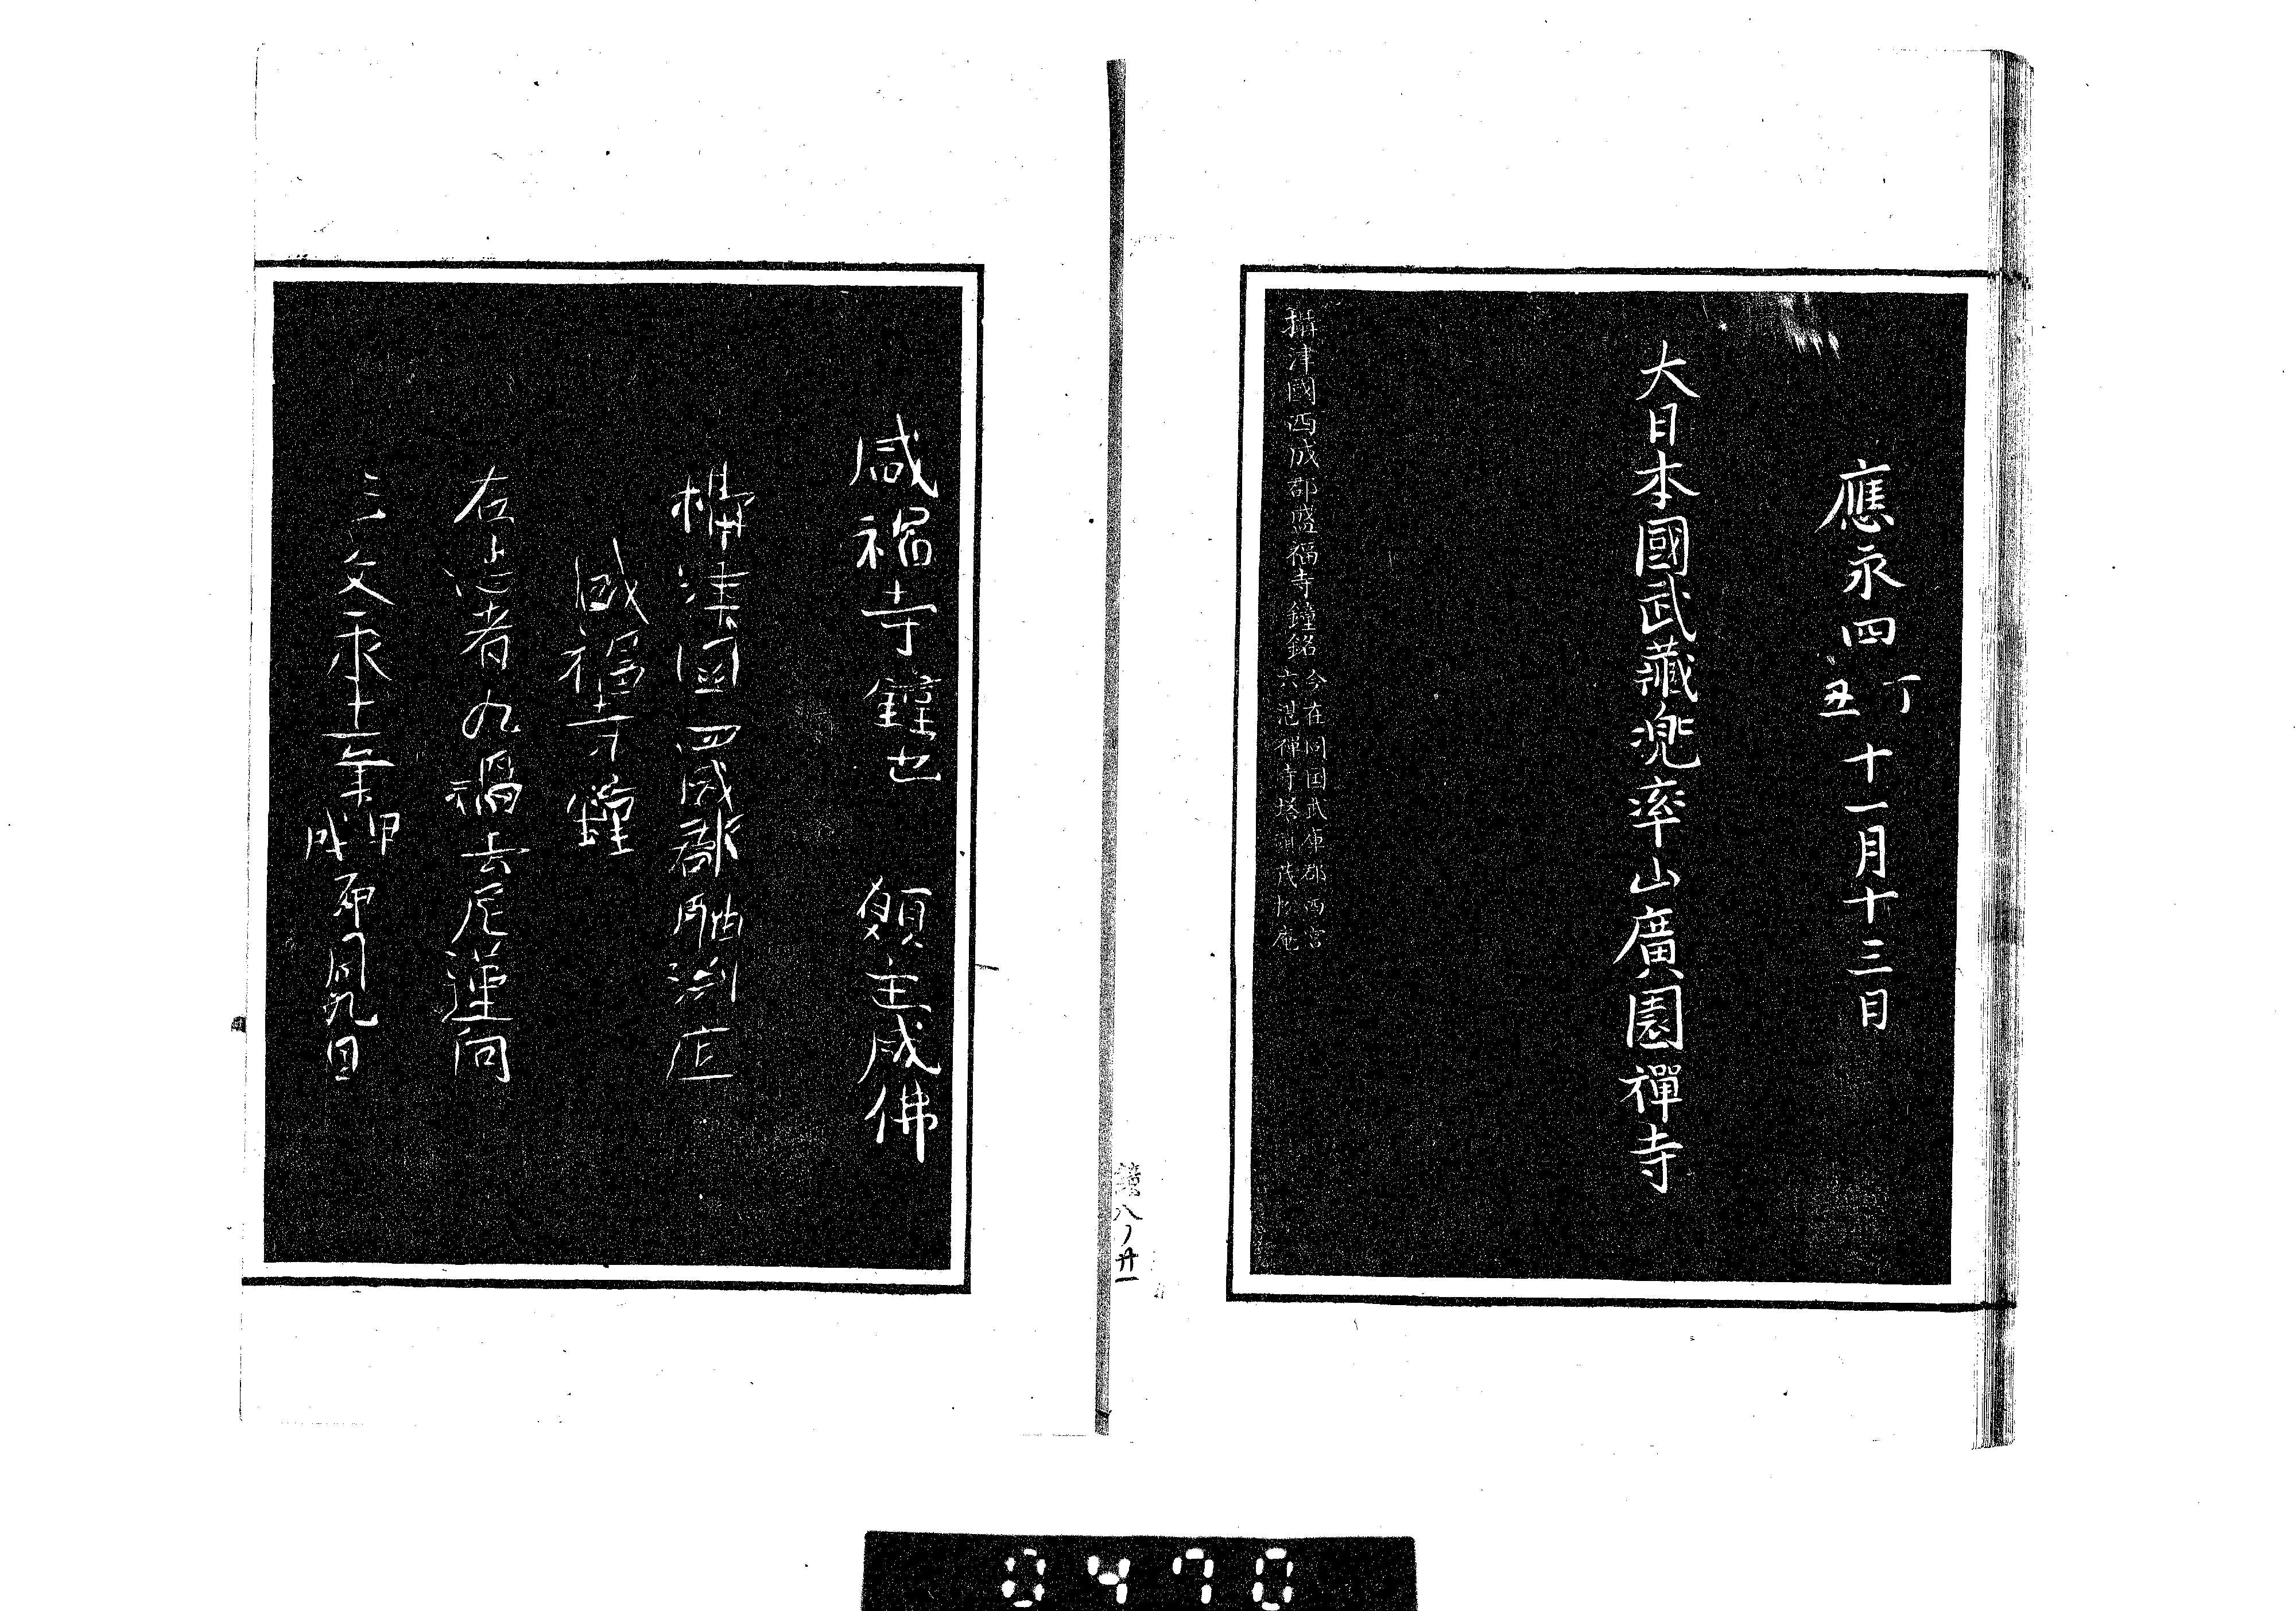 應永四丁丑十一月十三日
大日本國武藏兜率山廣園禪寺
攝津國西成郡盛福寺鐘銘 今在同国武庫郡西宮
六湛禅寺塔頭茂松庵
鐘八ノ廿一
盛福寺鐘也 願主成佛
攝津國西成郡
盛福寺鐘
右志者為 過去尼蓮阿
文永十一年甲戌 月 日
0470